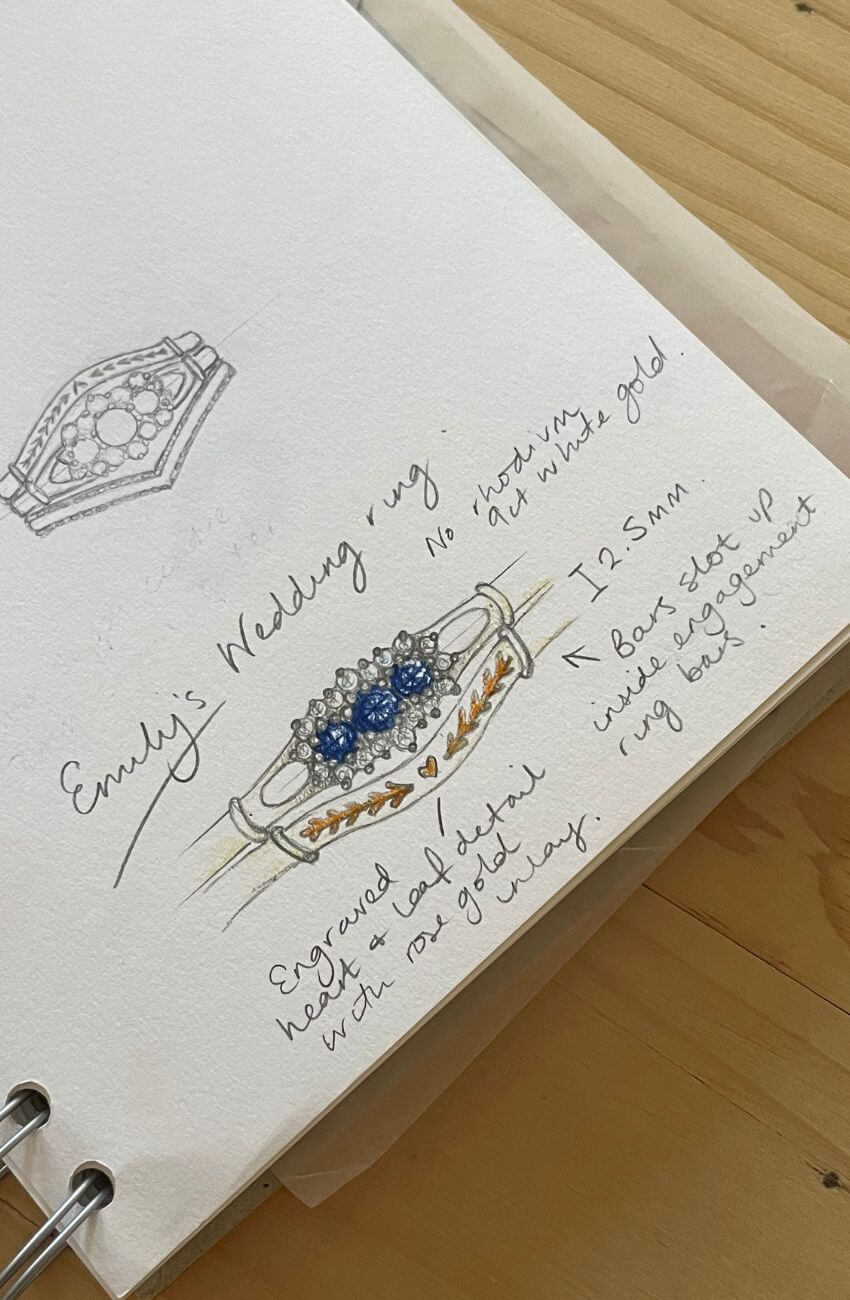 Emily's Wedding ring
No rhodium
9ct white gold.
I 2.5mm.
↖ Bars slot up
inside engagement
ring bars.
Engraved
heart & leaf detail
with rose gold
inlay.